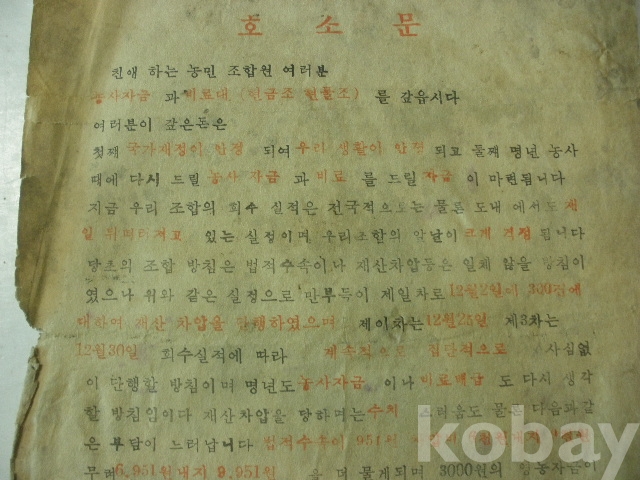 호 소 문
친애 하는 농민 조합원 여러분
농사자금 과 비료대 (현금조 현물조) 를 갚읍시다
여러분이 갚은돈은
첫째 국가재정이 안정 되여 우리 생활이 안정 되고 둘째 명년 농사
때에 다시 드릴 농사 자금 과 비료 를 드릴 자금 이 마련됩니다
지금 우리 조합의 회수 실적은 전국적으로는 물론 도내 에서도 제
일 뒤떠러져고 있는 실정이며 우리조합의 앞날이 크게 걱정 됩니다
당초의 조합 방침은 법적수속이나 재산차압등은 일체 않을 방침이
였으나 위와 같은 실정으로 만부득이 제일차로 12월2일에 300정에
대하여 재산 차압을 단행하였으며 제이차는 12월25일 제3차는
12월30일 회수실적에 따라 계속적으로 집단적으로 사심없
이 단행할 방침이며 명년도 농사자금 이나 비료배급 도 다시 생각
할 방침임이다 재산차압을 당하며는 수치 스러움도 물론 다음과같
은 부담이 느러납니다 법적수속이 951원
무려 6,951원내지 9,951원 을 더 물게되며 3000원의 영농자금이
kobay